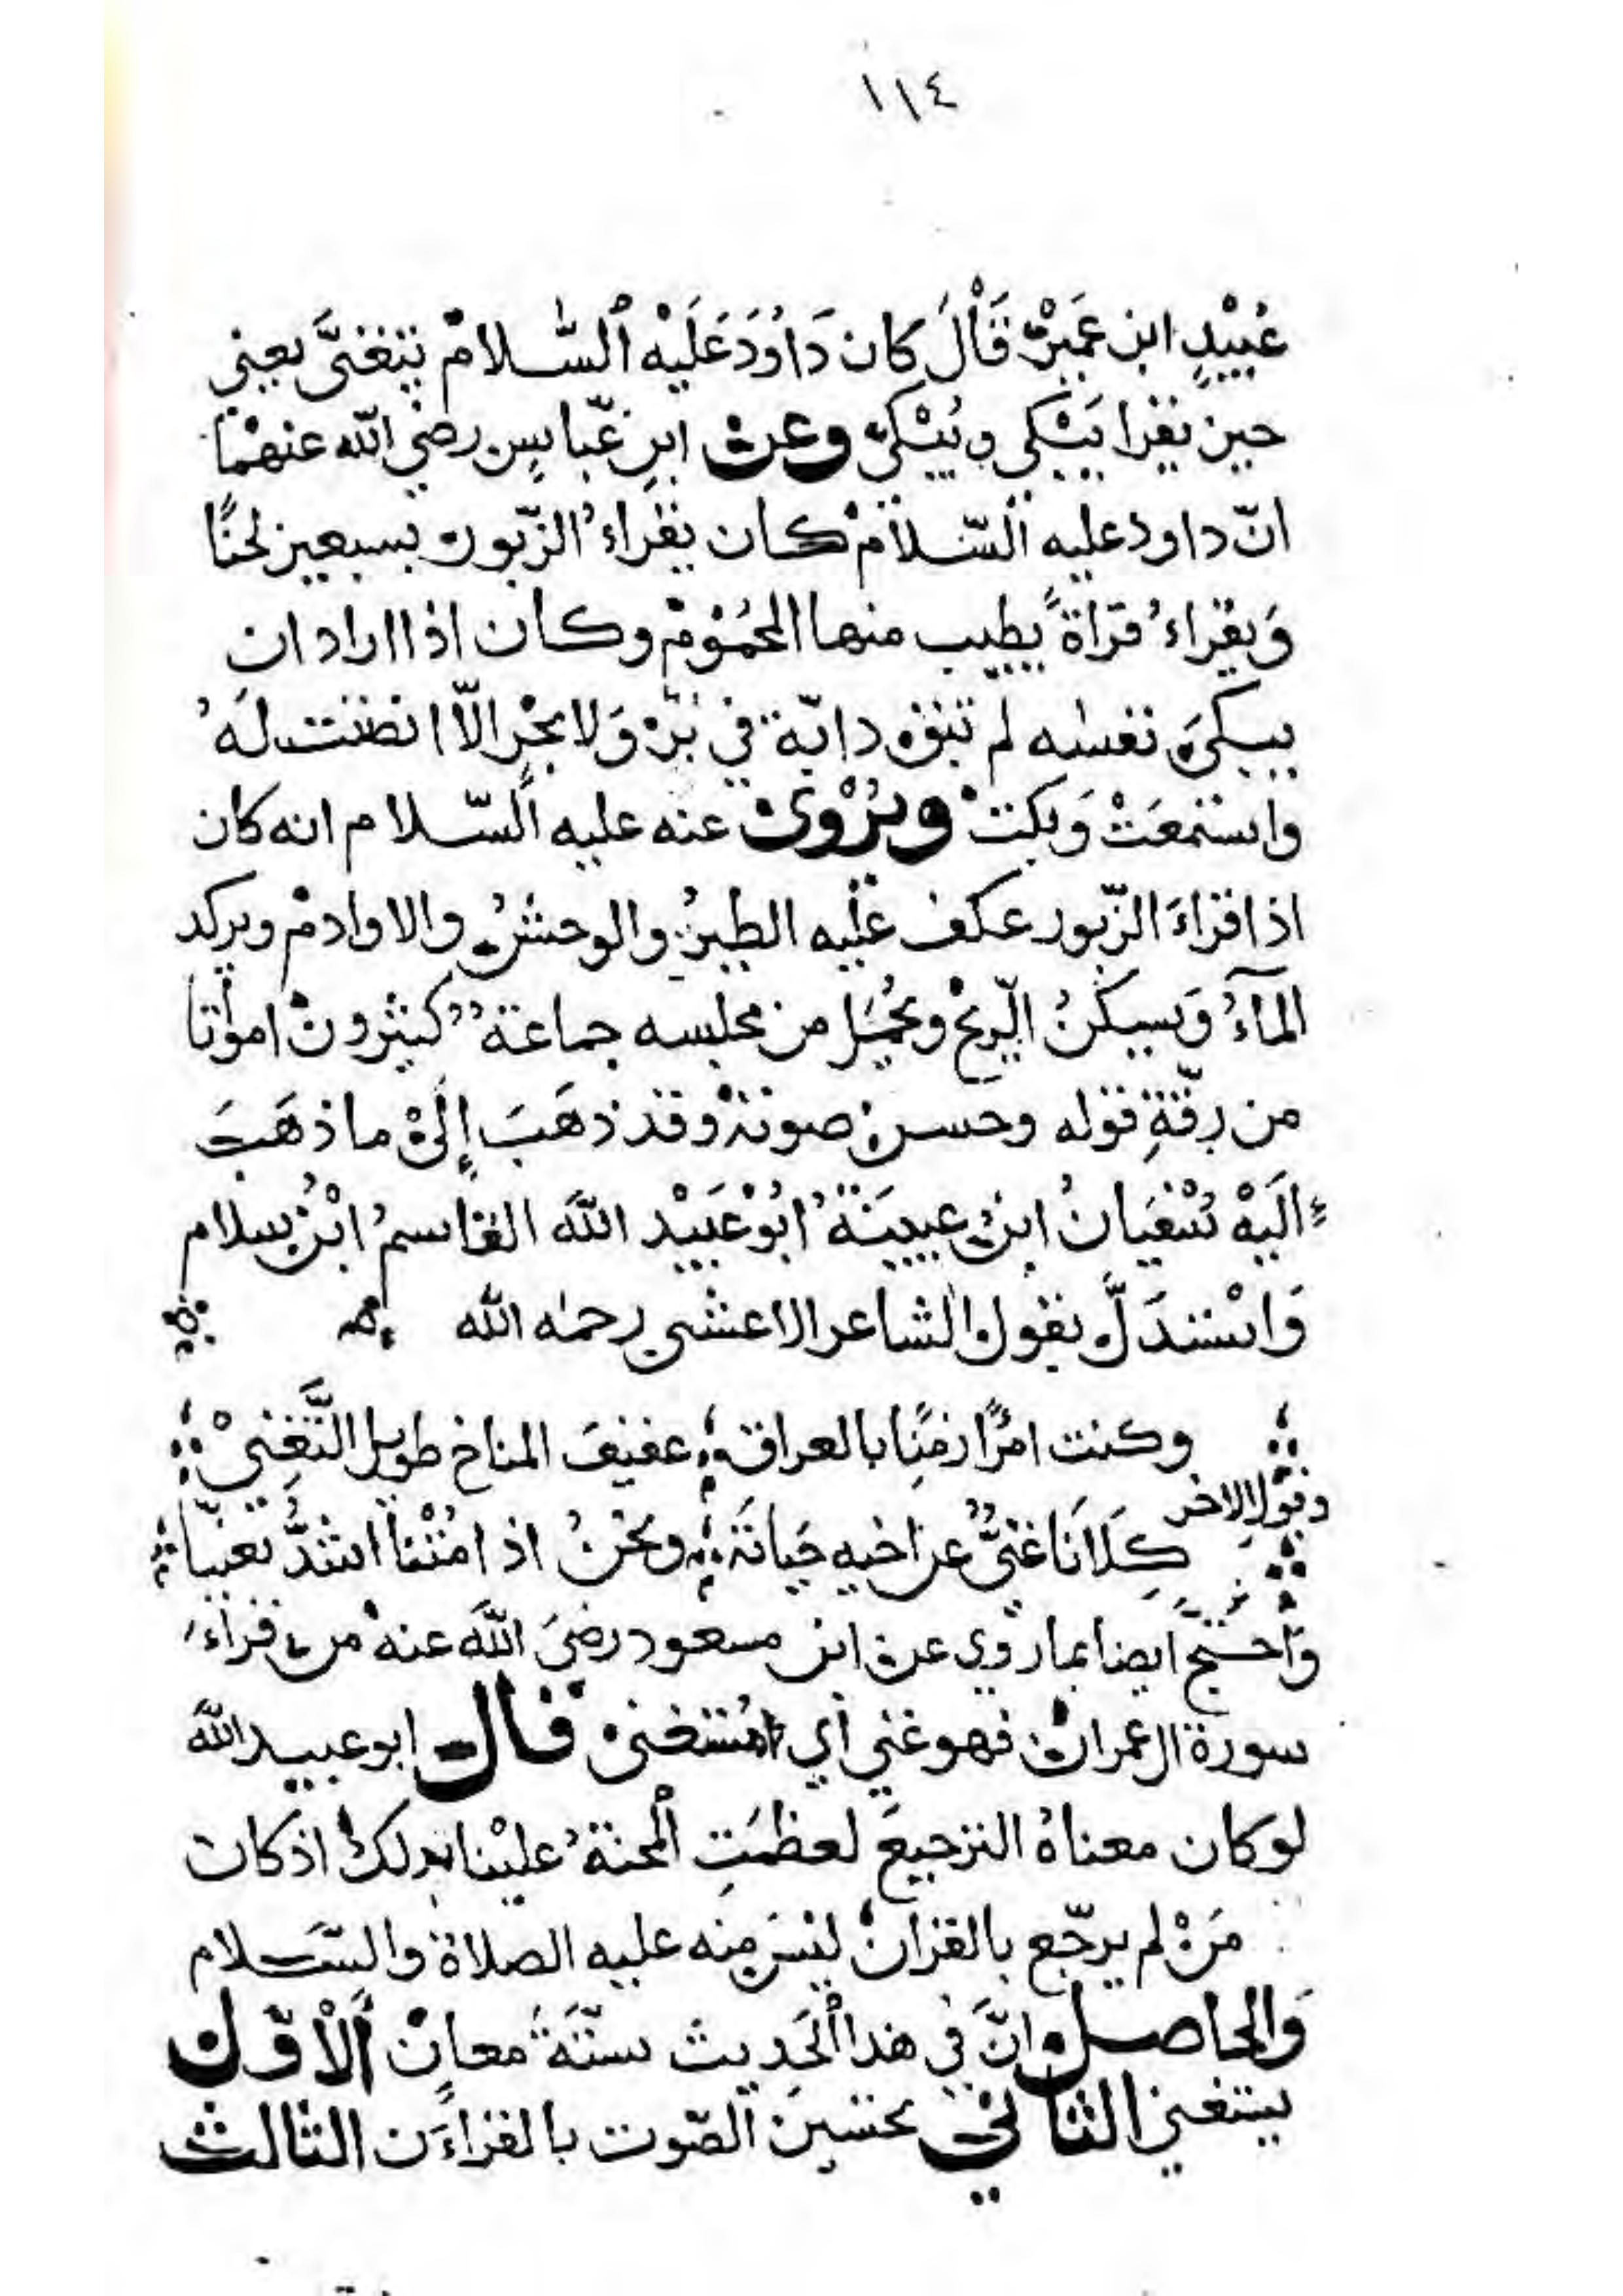 ١١٤
عُبَيْدٍ ابن عَمَيْرْ قَالَ كان دَاوُدَ عَلَيْه ٱلسَّلامْ يتغنىَّ يعني
حين يقرا يَبْكي و يُبْكىْ وعن ابنِ عبّاسٍ رضي الله عنهمْا
انّ داود عليه السّلامْ كان يقراءُ الزّبور بسبعين لحنًا
وَيقراءُ قراةً يطيب منها المحمُومْ وكان اذا اراد ان
يبكىَ نفسه لم تبق دابّة في برْ وَلا بحْرٍ الاّ انصتت لَهُ
واستمعَتْ وَبكتْ ويُرْوىْ عنه عليه السّلام انه كان
اذا قراءَ الزّبور عكف عليه الطيرُ والوحشُ والاوادمْ ويركد
المآءُ وَيسكنُ الرّيحْ ويحُمَل من مجلسه جماعة كثيرون امواتا
من رِقّةِ قوله وحسن صوتهْ وقد ذهَبَ إِلَىْ ما ذهَبَ
اليَهْ سُفيَانُ ابن عيينَةُ ابُوْعبَيْد اللهَ القاسمُ ابْنُ سلام
وَاسْتدَلَّ بقول الشاعر الاعشى رحمه الله
وكنت امرًا زمنًا بالعراق عفيفَ المناخ طويل التَّغنيْ
وقول الاخر
كِلاَنَا غنىٌّ عن اخيه حَياتَهْ ونحنُ اذ امُتْنا اشدُّ تغنيّا
وَاحتج ايضا بما روي عن ابن مسعود رضيَ اللهَ عنهْ من قراءَ
سورة ال عمران فهو غني أي مُستغنىْ قال ابو عبيد اللهَ
لو كان معناهُ الترجيعَ لعظمَتِ ٱلمحنةُ عليْنا بذلكْ اذ كان
مَنْ لم يرجّع بالقرانْ ليسَ منه عليه الصلاة والسَّلام
وَالحاصل وانَّ في هذا الحَديث ستَّةَ معانْ ٱلأوّل
يستغني الثاني تحسين الصّوت بالقراءَن الثالث